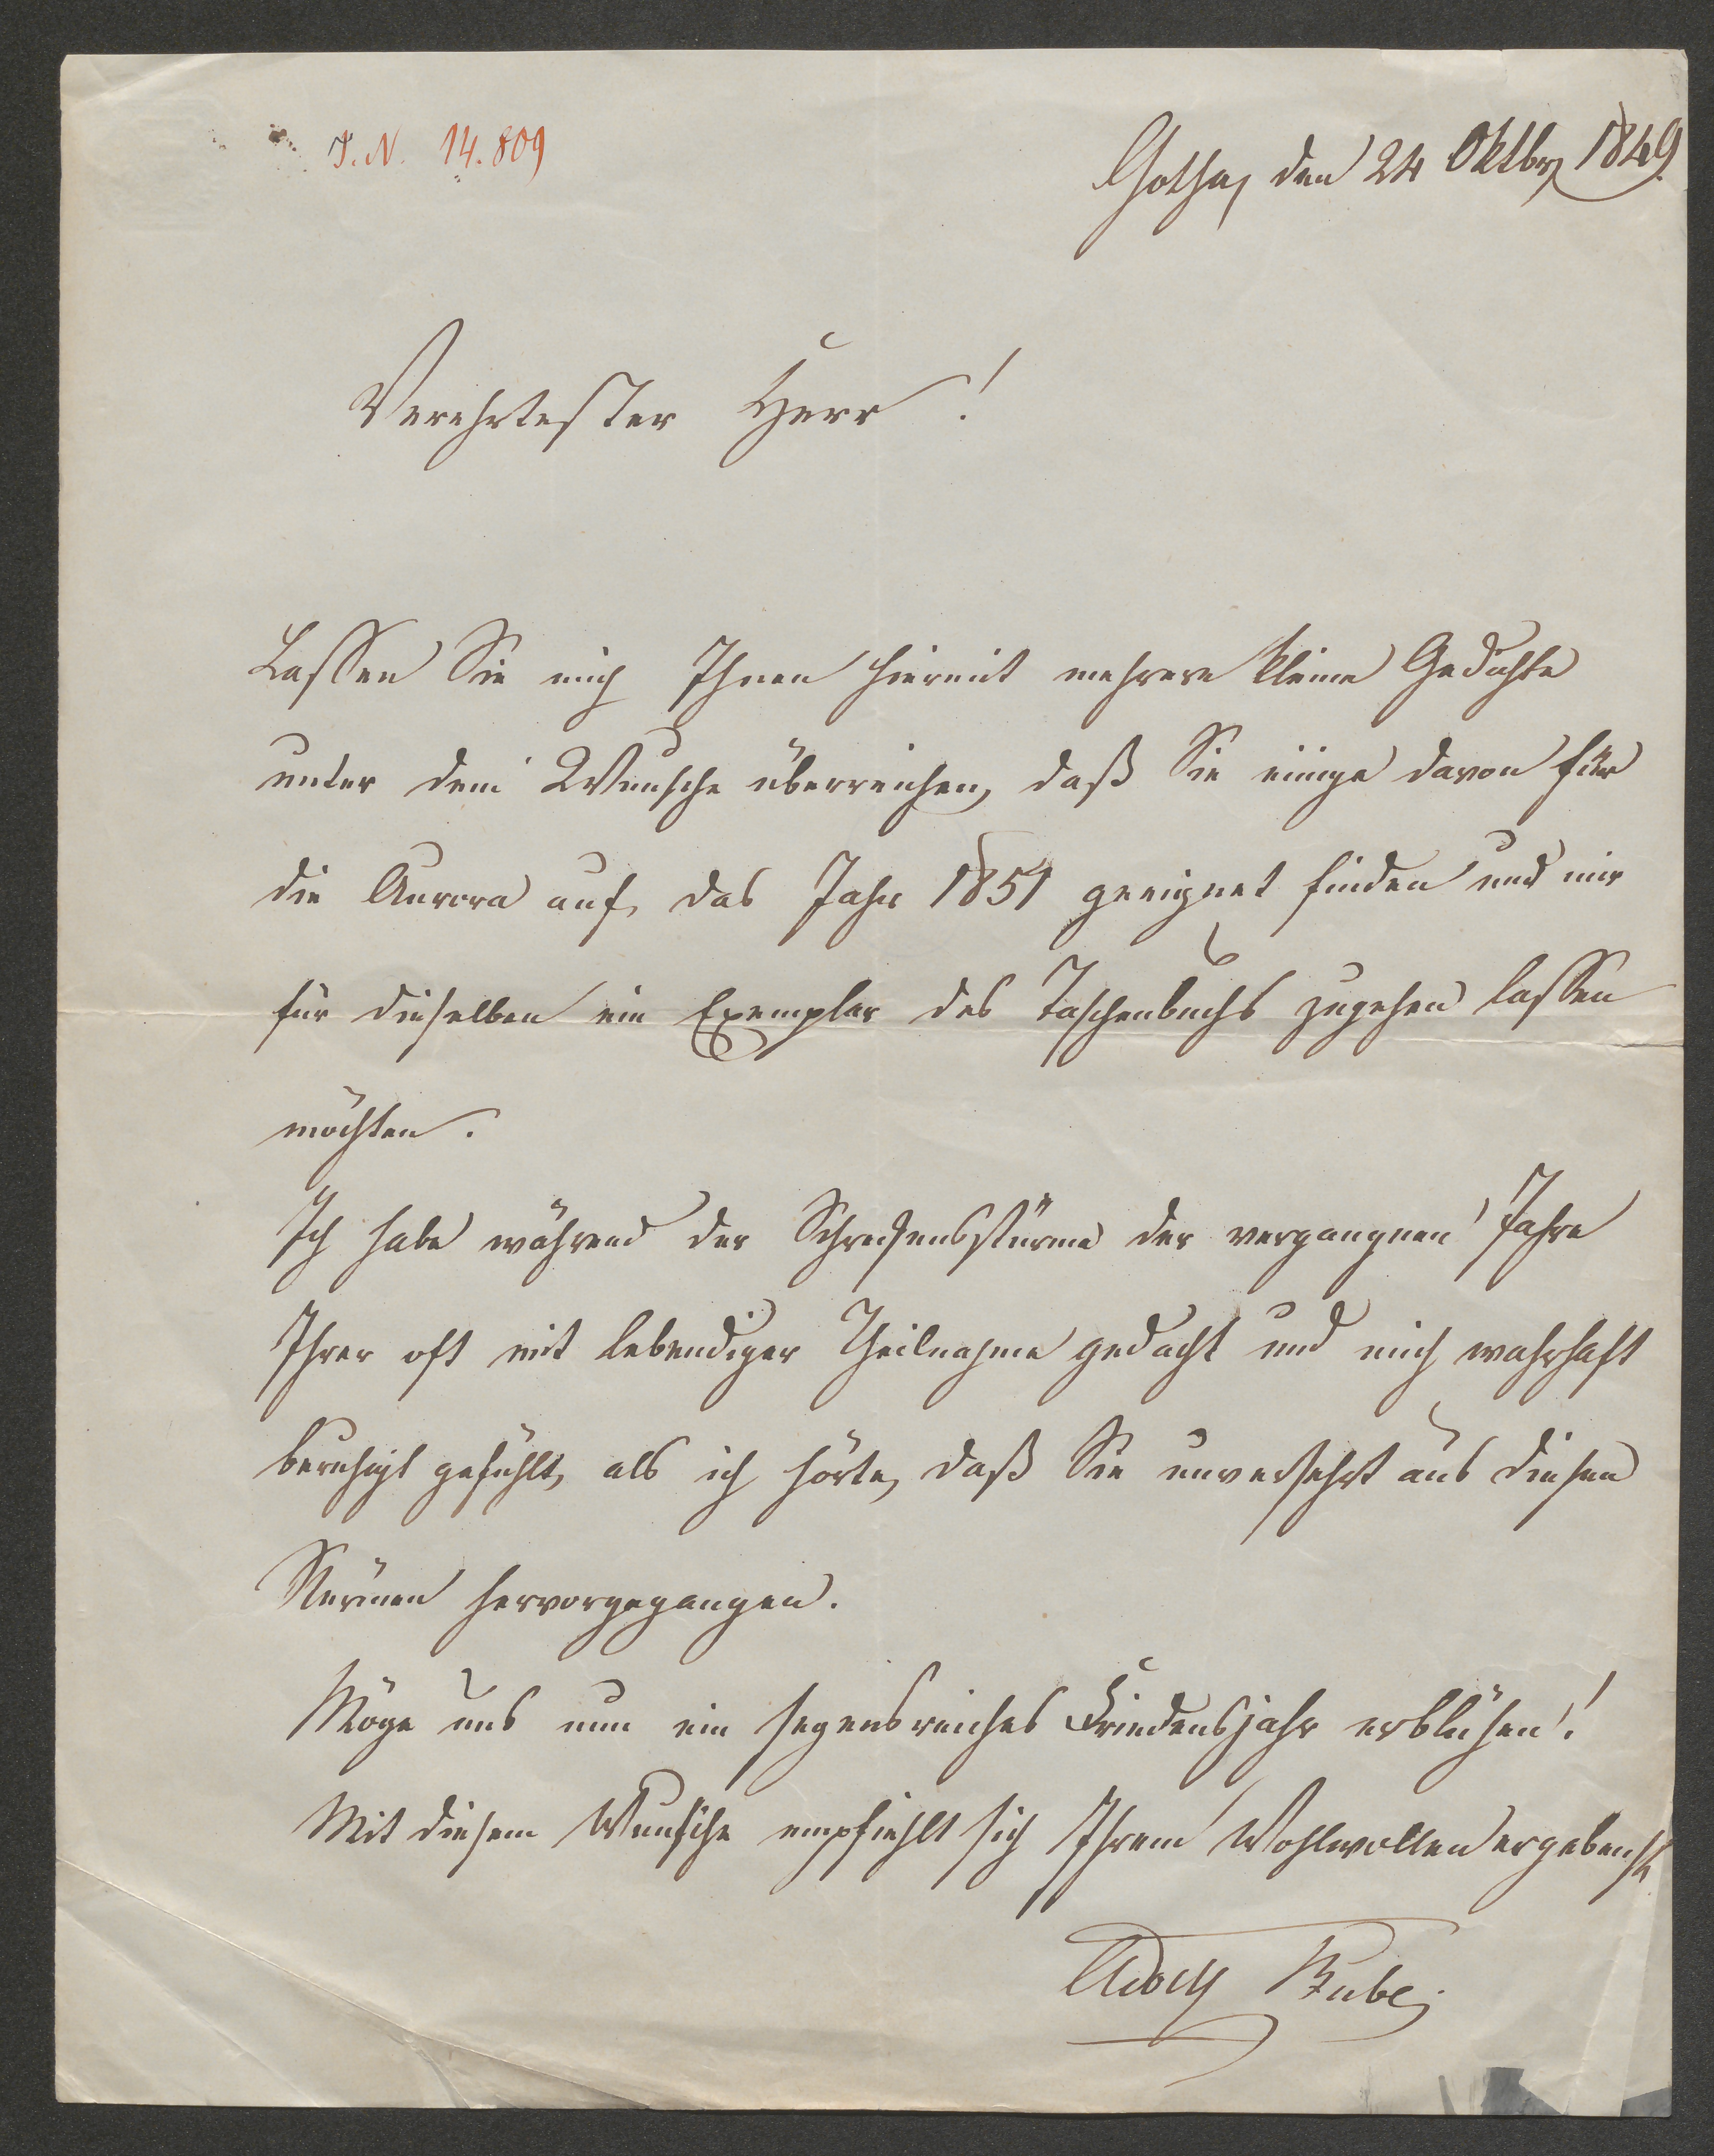 I. N. 14.809
Gotha, den 24 Oktbr 1849.
Verehrtester Herr!
Lassen Sie mich Ihnen hiermit mehrere kleine Gedichte
unter dem Wunsche überreichen, daß Sie einige davon für
die Aurora auf das Jahr 1851 geeignet finden und mir
für dieselben ein Exemplar des Taschenbuchs zugehen lassen
möchten.
Ich habe während der Schreckensstürme der vergangnen Jahre
Ihrer oft mit lebendiger Theilnahme gedacht und mich wahrhaft
beruhigt gefühlt, als ich hörte, daß Sie unversehrt aus diesen
Stürmen hervorgegangen.
Möge uns nun ein segensreiches Friedensjahr erblühen!
Mit diesem Wunsche empfiehlt sich Ihrem Wohlwollen ergebenst
Adolf Bube.